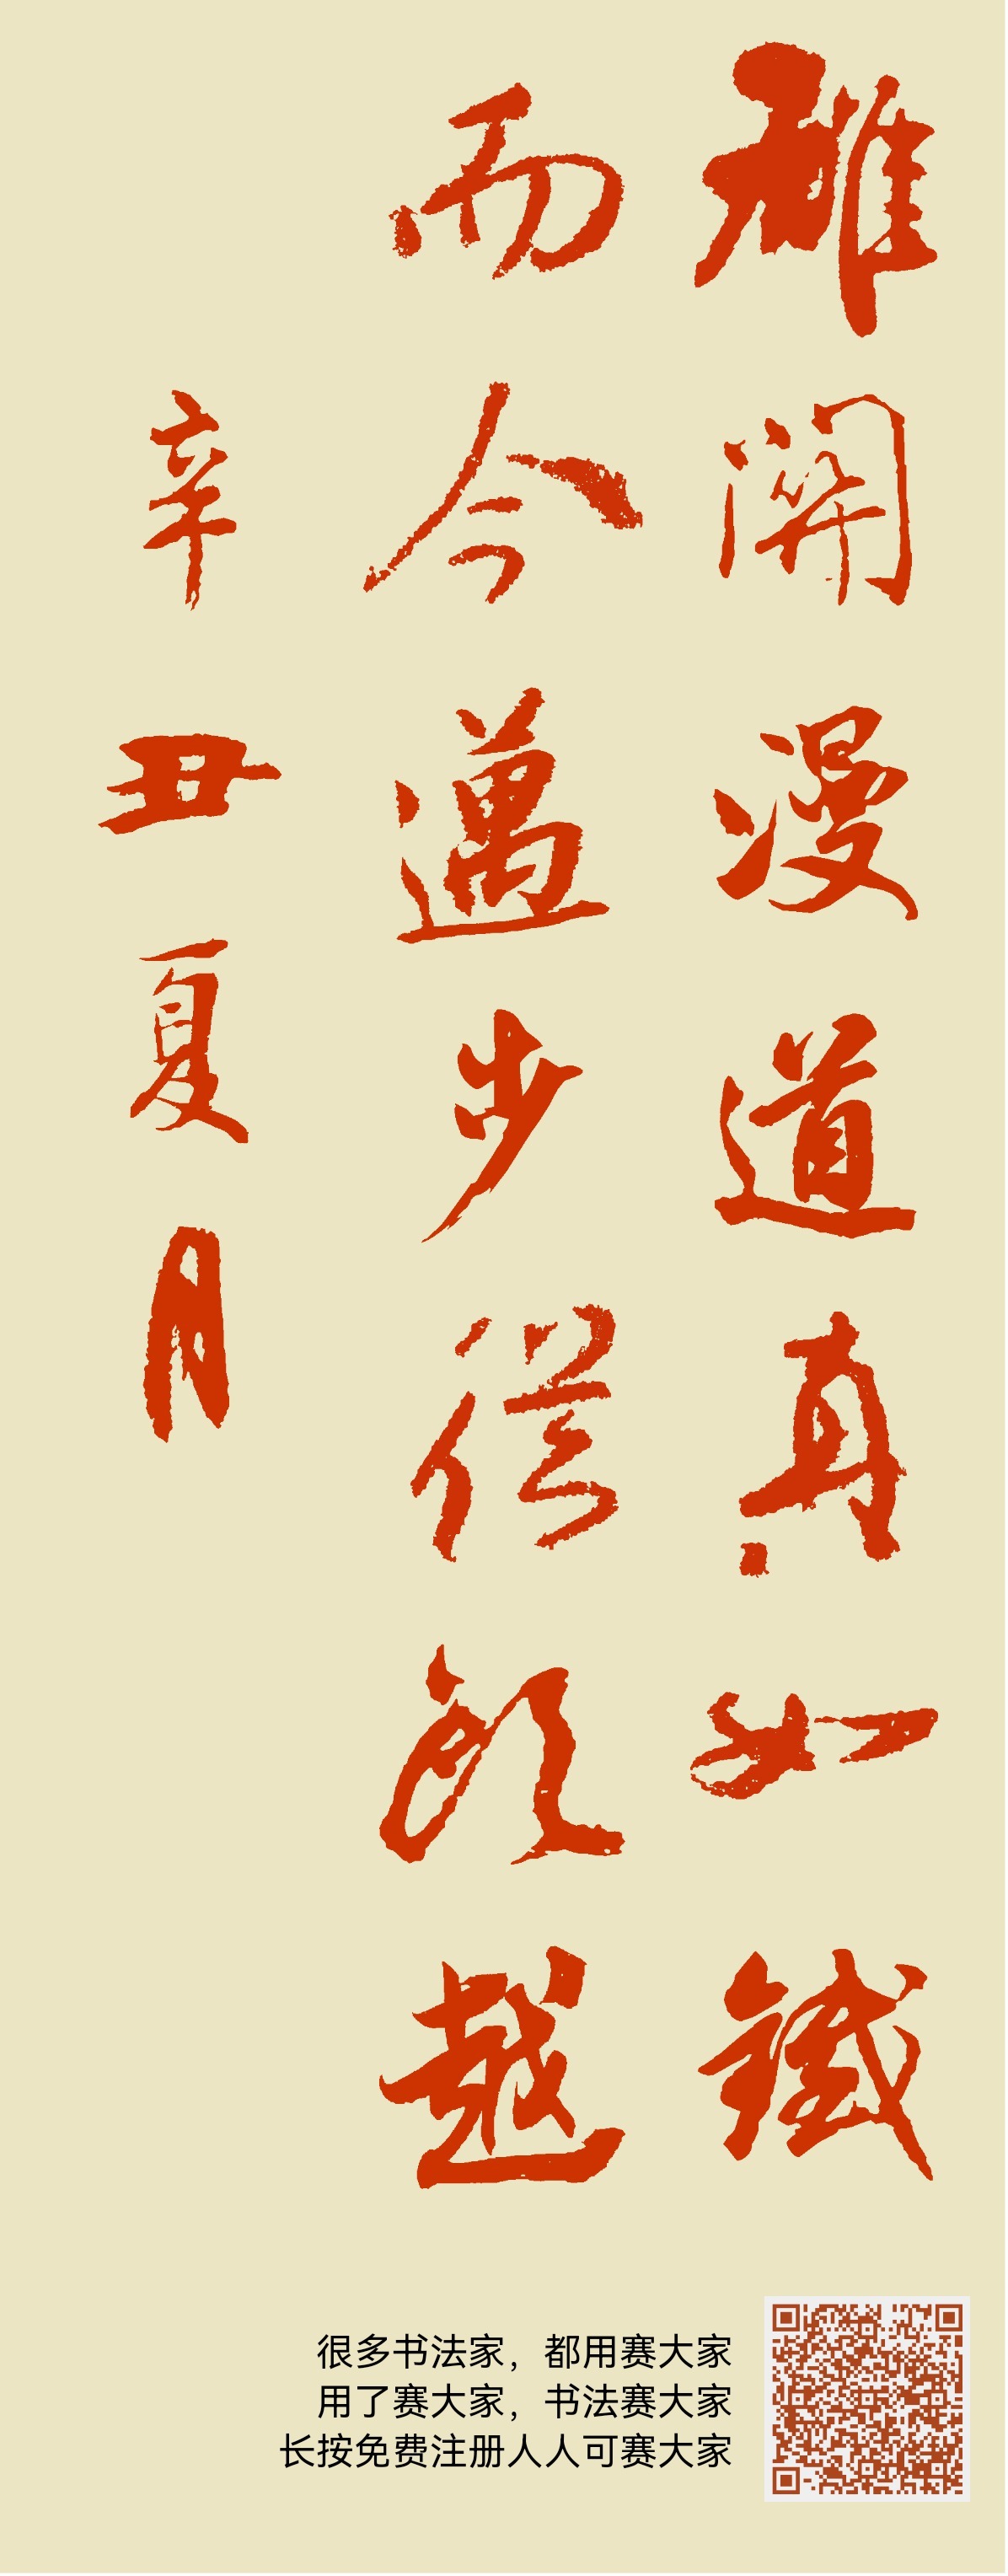 雄關漫道真如鐵
而今邁步從頭越
辛丑夏月
很多书法家，都用赛大家
用了赛大家，书法赛大家
长按免费注册人人可赛大家